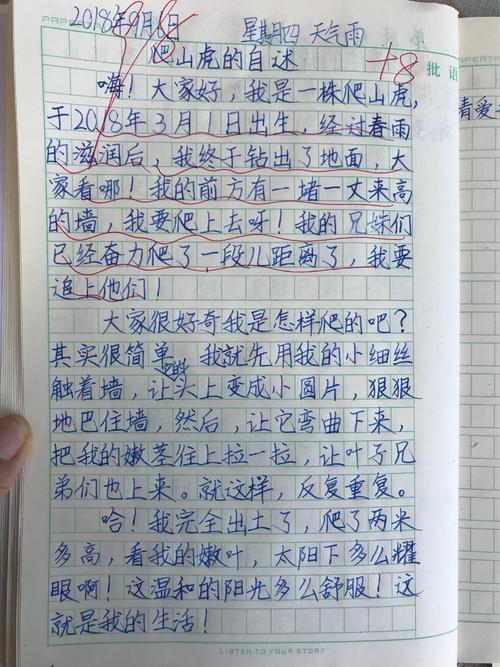 2018年9月6日 星期四 天气雨
爬山虎的自述 +8 批语
嗨！大家好，我是一株爬山虎，
于2018年3月1日出生，经过春雨
的滋润后，我终于钻出了地面，大
家看哪！我的前方有一堵一丈来高
的墙，我要爬上去呀！我的兄妹们
已经奋力爬了一段儿距离了，我要
追上他们！
大家很好奇我是怎样爬的吧？
其实很简单 我就先用我的小细丝
触着墙，让头上变成小圆片，狠狠
地巴住墙，然后，让它弯曲下来，
把我的嫩茎往上拉一拉，让叶子兄
弟们也上来。就这样，反复重复。
哈！我完全出土了，爬了两米
多高，看我的嫩叶，太阳下多么耀
眼啊！这温和的阳光多么舒服！这
就是我的生活！
LISTEN TO YOUR STORY